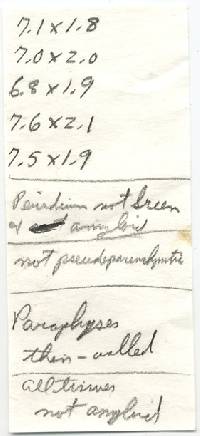 7.1 x 1.8
7.0 x 2.0
6.8 x 1.9
7.6 x 2.1
7.5 x 1.9
Peridium not green
amyloid
not pseudoparenchymatic
Paraphyses
thin-walled
all tissues
not amyloid